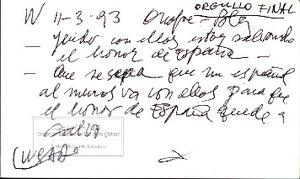 W 11-3-93
ORGULLO FINAL
— yendo con ellos estoy salvando
el honor de españa —
— Que se sepa que un español
al menos va con ellos para que
el honor de España quede a
salvo